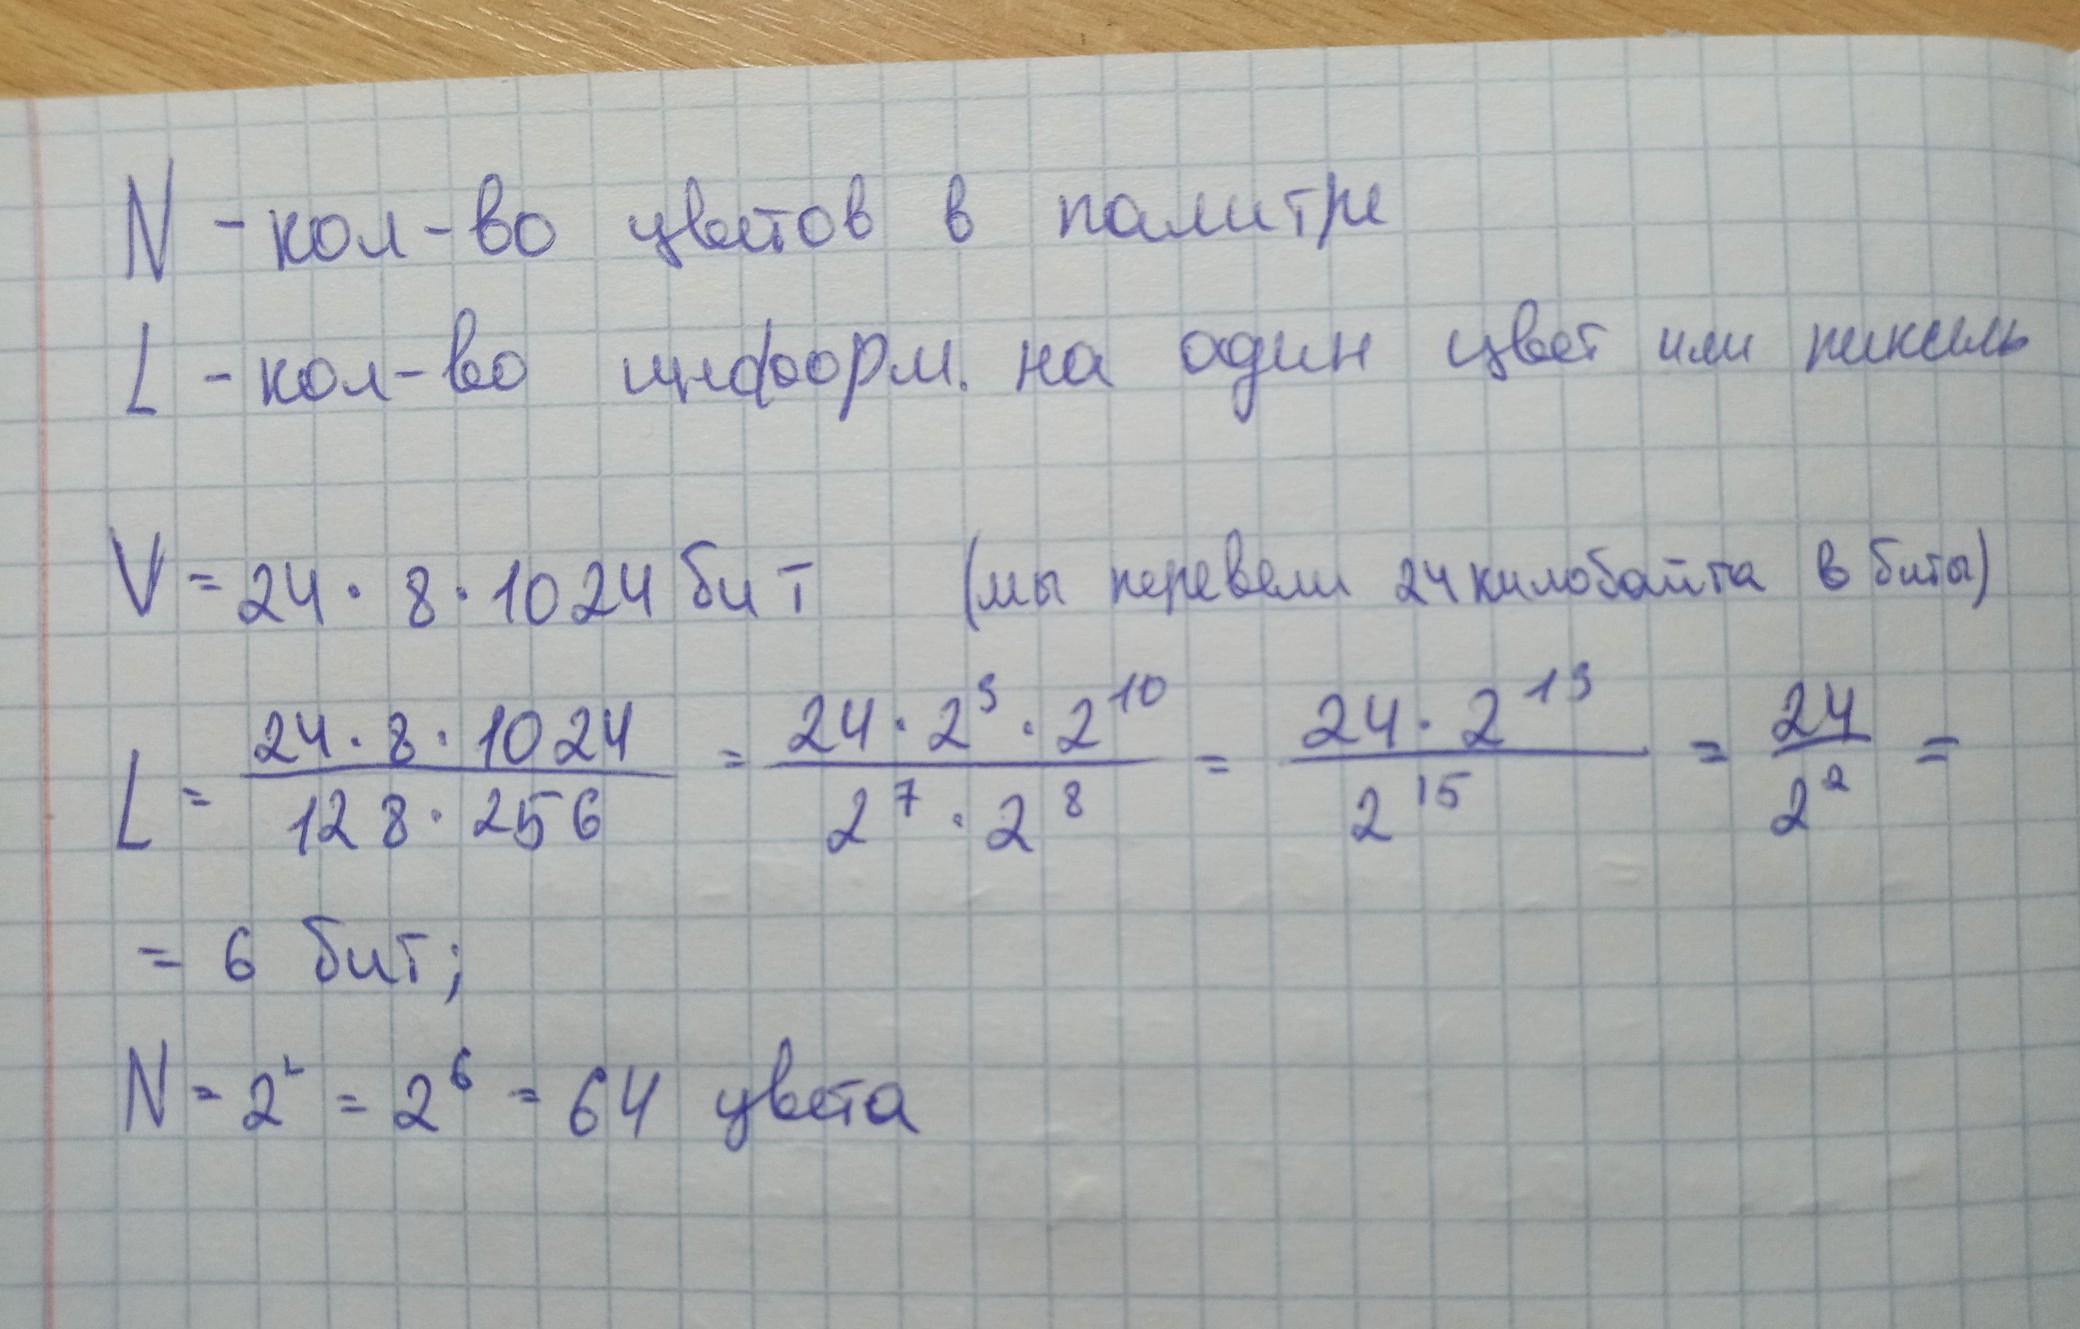 N - кол-во цветов в палитре
L - кол-во информ. на один цвет или пиксель
V = 24 · 8 · 1024 бит (мы перевели 24 килобайта в биты)
L = \frac{24 · 8 · 1024}{128 · 256} = \frac{24 · 2^3 · 2^{10}}{2^7 · 2^8} = \frac{24 · 2^{13}}{2^{15}} = \frac{24}{2^2} =
= 6 бит;
N = 2^L = 2^6 = 64 цвета